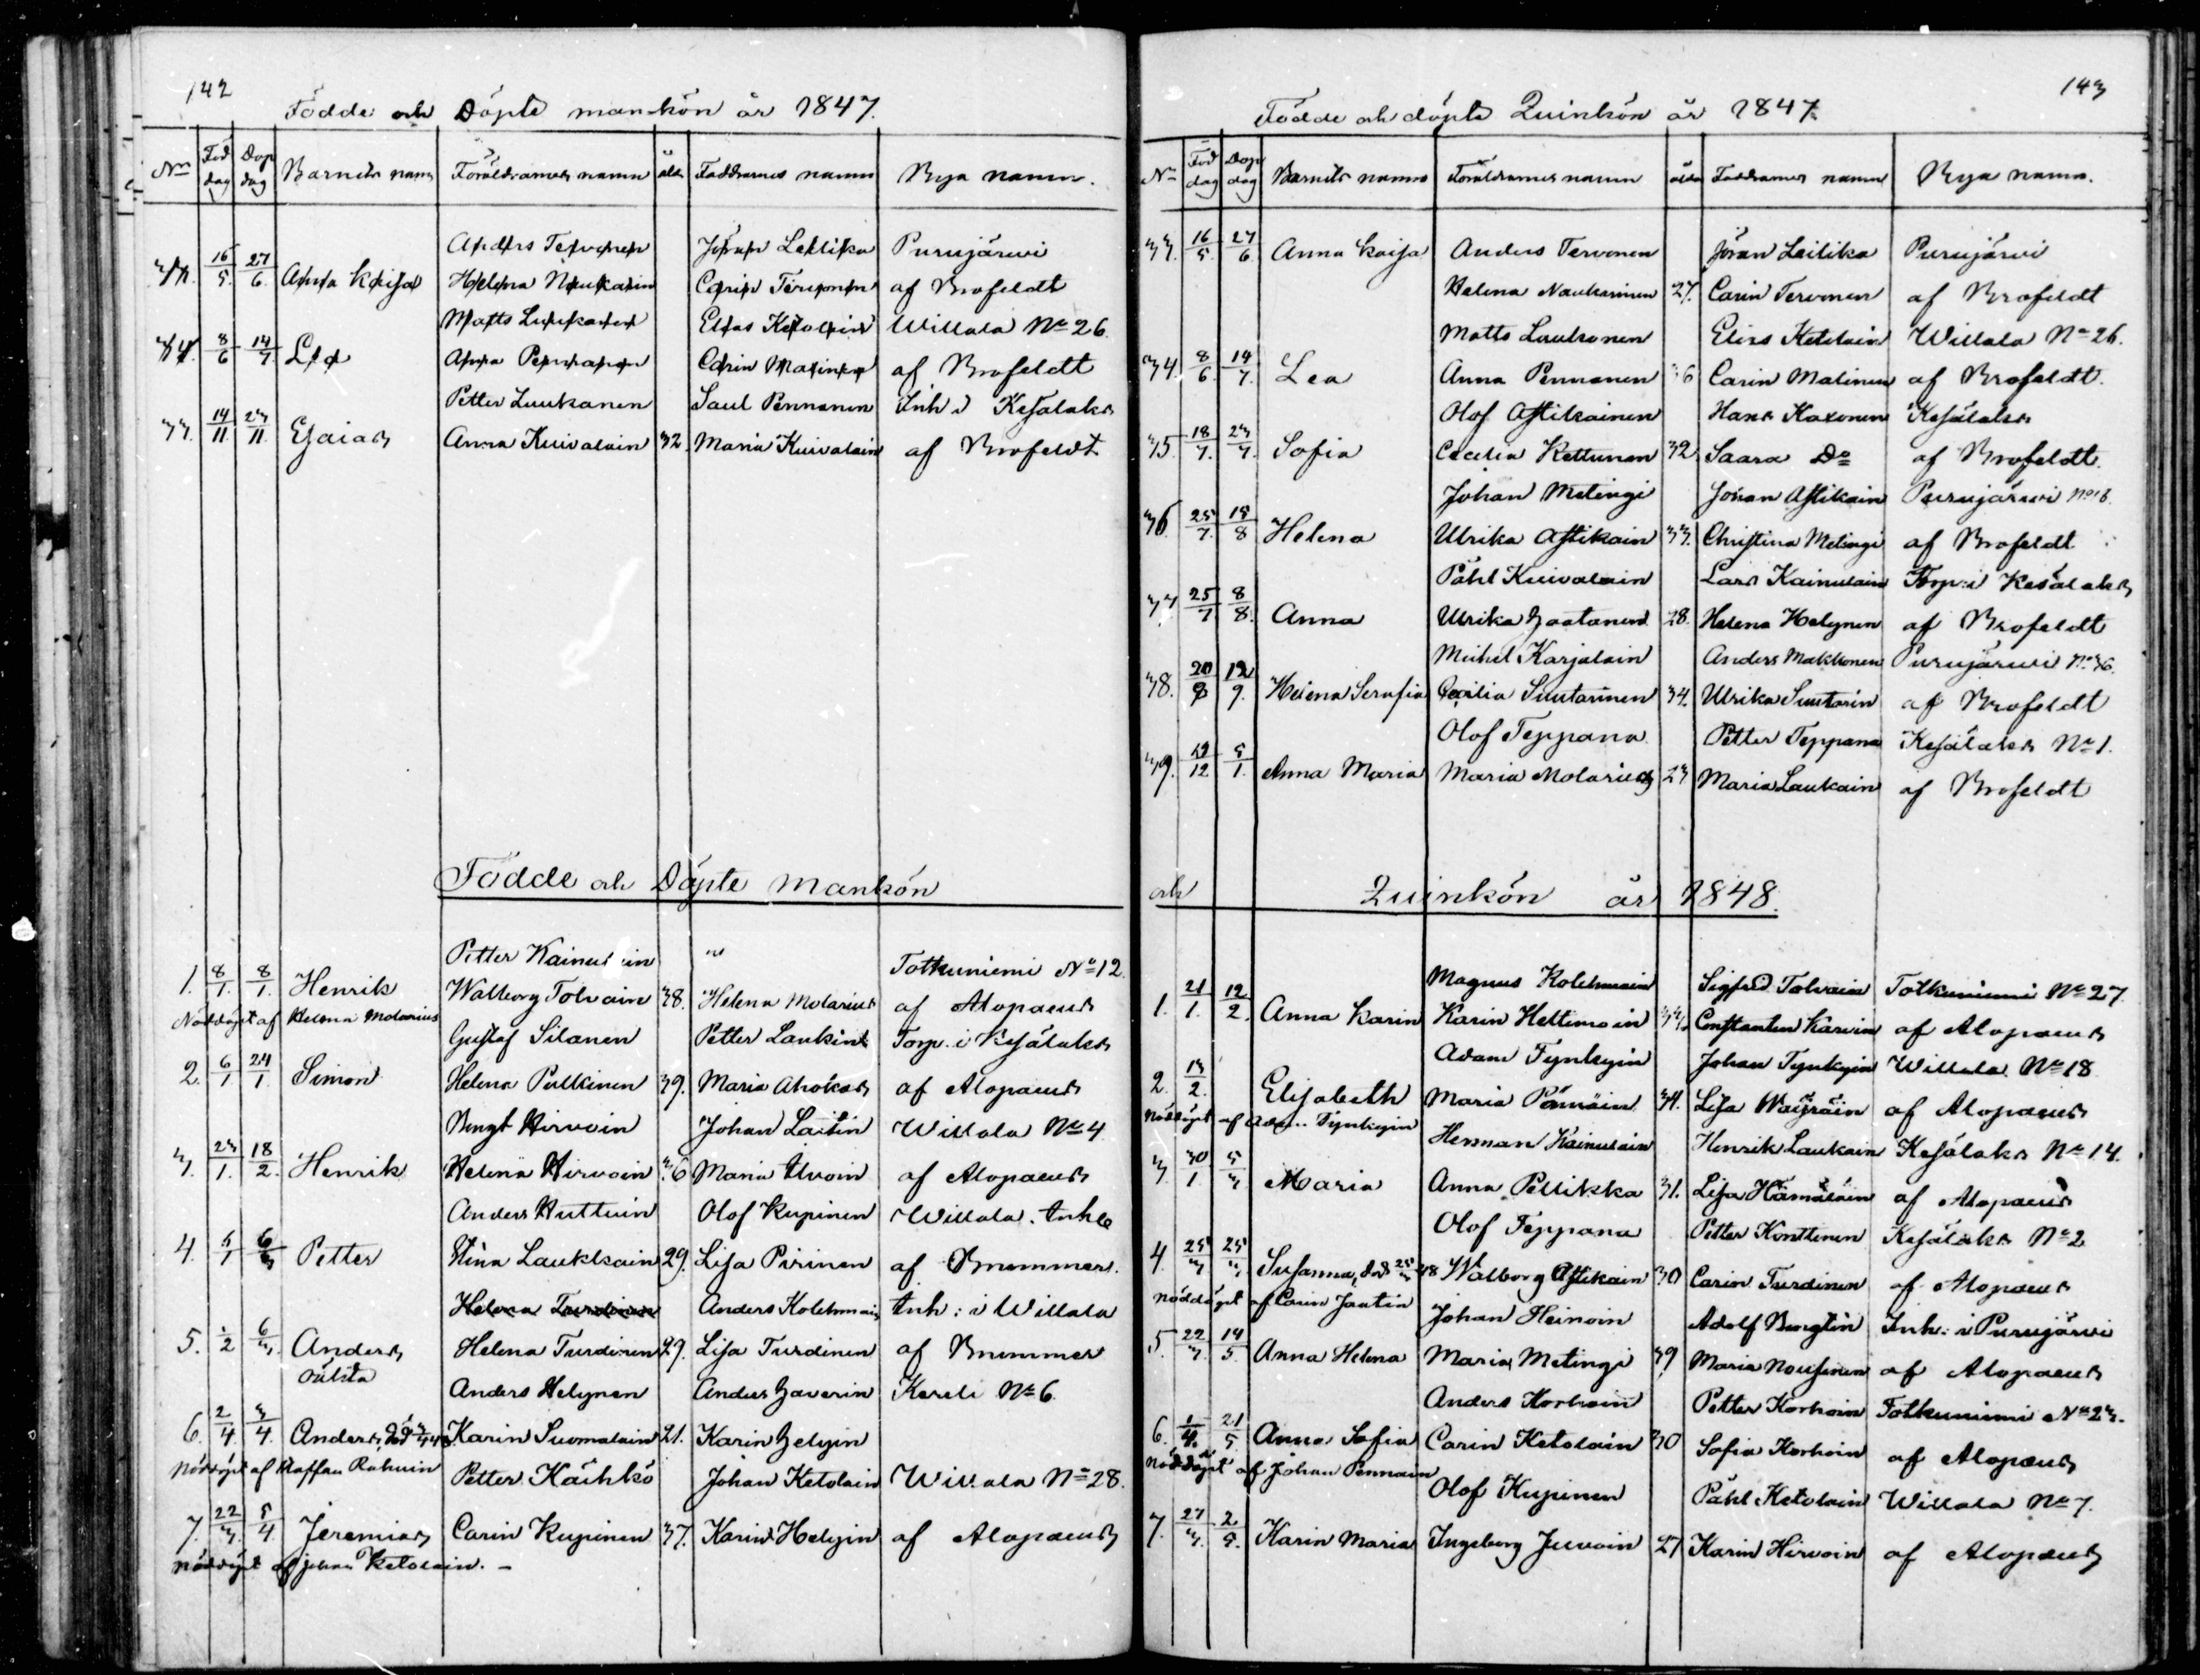 142
Födde och Döpte mankön år 1847.
Nro Föd dag Döp dag Barnets namn Föräldrarnes namn ålder Faddrarnes namn Bya namn.
Anders Tervonen Jöran Leilika Purujärvi
33. 16/5. 27/6. Anna Kaisa Helena Naukarin Carin Tervonen af Brofeldt
Matts Laukanen Elias Ketolain Willala No 26.
34. 8/6 14/7 Lea Anna Pennanen Carin Malinen af Brofeldt
Petter Luukanen Saul Pennanen Inh i Kesälaks
33. 14/11. 23/11. Esaias Anna Kuivalain 32. Maria Kuivalain af Brofeldt
Födde och Döpte Mankön
Petter Kainulain " Totkuniemi No 12.
1. 8/1. 8/1. Henrik Walborg Tolvain 38. Helena Molarius af Alopaeus
Nöddöpt af Helena Molarius
Gustaf Silanen Petter Laukin Torp. i Kesälaks
2. 6/1 24/1. Simon Helena Pulkinen 39. Maria Ahokas af Alopaeus
Bengt Hirvoin Johan Laitin Willala No 4
3. 23/1. 18/2. Henrik Helena Hirvoin 36 Maria Ilvoin af Alopaeus
Anders Huttuin Olof Kupinen Willala. Inh
4. 5/1 6/3 Petter Stina Laukkain 29. Lisa Pirinen af Brummer.
Helena Turdinen Anders Kolehmain Inh: i Willala
5. 1/2 6/3. Anders Helena Turdinen 29. Lisa Turdinen af Brummer
oäkta
Anders Helynen Anders Gaverin Kereli No 6.
6. 2/4. 3/4. Anders, död Karin Suomalain 21. Karin Gelyin
Nöddöpt af Staffan Rahuin
Petter Käihkö Johan Ketolain Willala No 28.
7. 22/3. 5/4 Jeremias Carin Kupinen 37. Karin Helyin af Alopaeus
Nöddöpt af Johan Ketolain. –
143
Födde och döpte Quinkön år 1847.
Nro Föd dag Döp dag Barnets namn Föräldrarnes namn ålder Faddrarnes namn Bya namn.
33. 16/5. 27/6. Anna Kaisa Anders Tervonen Jöran Leilika Purujärvi
Helena Naukarinen 27. Carin Tervonen af Brofeldt
Matts Laukonen Elias Ketolain Willala No 26.
34. 8/6. 14/7. Lea Anna Pennanen 36 Carin Malinen af Brofeldt.
Olof Astikainen Hans Kaxonen Kesälaks
35. 18/7. 23/7. Sofia Cecilia Kettunen 32. Saara Do af Brofeldt.
Johan Metingi Jöran Astikain Purujärvi No 18.
36. 25/7. 18/8 Helena Ulrika Astikain 33. Christina Metingi af Brofeldt
Påhl Kuivalain Lars Kainulain Torp: i Kesälaks
37. 25/7. 8/8. Anna Ulrika Gaatanen 28. Helena Helynen af Brofeldt
Michel Karjalain Anders Makkonen Purujärvi No 36.
38. 20/8 12/9. Helena Serafia Cecilia Suutarinen 34. Ulrika Suutarin af Brofeldt
Olof Teppana Petter Teppana Kesälaks No 1.
39. 12/12. 5/1. Anna Maria Maria Molarius 23 Maria Laukain af Brofeldt
och Quinkön år 1848.
Magnus Kolehmain Sigfrid Tolvain Totkuniemi No 27.
1. 21/1. 12/2. Anna Karin Karin Hettimoin Constantin Karvin af Alopaeus
Adam Tynkyin Johan Tynkyin Willala No 18
2. 13/2. Elisabeth Maria Pännäin 34. Lisa Waisäin af Alopaeus
Nöddöpt af Adam Tynkyin
Herman Kainulain Henrik Laukain Kesälaks No 14.
3. 30/1. 5/3. Maria Anna Pellikka 31. Lisa Hämäläin af Alopaeus
Olof Teppana Petter Konttinen Kesälaks No 2
4. 25/3. 25/3. Susanna, död 25/3 48 Walborg Astikain 30 Carin Turdinen af Alopaeus
Nöddöpt af Carin Jantin
Johan Heinoin Adolf Bengtin Inh: i Purujärvi
5. 22/3. 14/5. Anna Helena Maria Metingi 39 Maria Nousinen af Alopaeus
Anders Korhoin Petter Korhoin Totkuniemi No 23.
6. 1/4. 21/5. Anna Sofia Carin Ketolain 30 Sofia Korhoin af Alopaeus
Nöddöpt af Johan Pennain
Olof Kupinen Påhl Ketolain Willala No 7.
7. 27/3. 2/5. Karin Maria Ingeborg Juvoin 27 Karin Hirvoin af Alopaeus